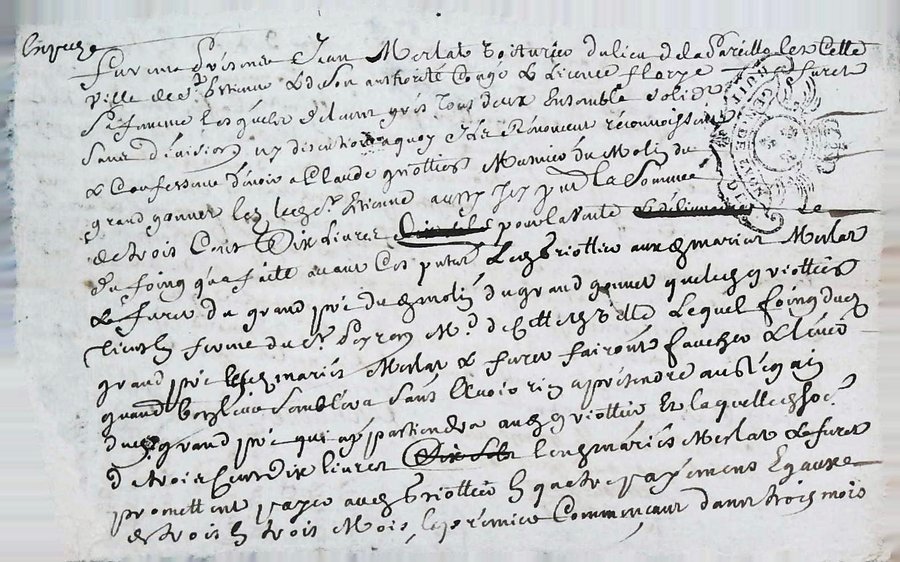 furent présents Jean Merlat Voiturier du lieu de la Pareille les Cette
ville de St Etienne & de son authorité Congé & licence Furet
Sa femme lesquels de leur gré tous deux Ensemble solid
sans division ny discution a quoy ils Renoncent reconnoissent
& Confessent devoir a Claude griottier Meunier du Molin du
grand gonnet les led St Etienne aussy icy pnt la Somme
de trois Cent Dix livres pour la Vente de
du foing qua faitte avant Ces pntes Led griottier aux d mariés Merlat
& furet du grand pré dud molin du grand gonnet que led griottier
tient en ferme du Sr Peyron Md de Cette d ville Lequel foing dud
grand pré lesd mariés Merlat & furet fairont faucher & lever
quand bon leur semblera sans avoir rien a prétendre au
dud grand pré qui appartiendra aud griottier Et laquelle d Soe
de trois Cent Dix livres lesd mariés Merlat & furet
promettent payer aud griottier En quatre payemens Egaux
de trois En trois Mois, le premier Commencant dans trois mois